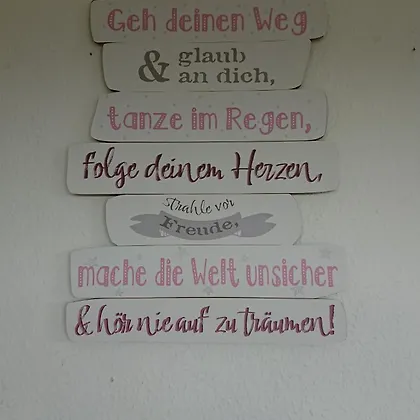 Geh deinen Weg
& glaub
an dich,
tanze im Regen,
folge deinem Herzen,
strahle vor
Freude,
mache die Welt unsicher
& hör nie auf zu träumen!